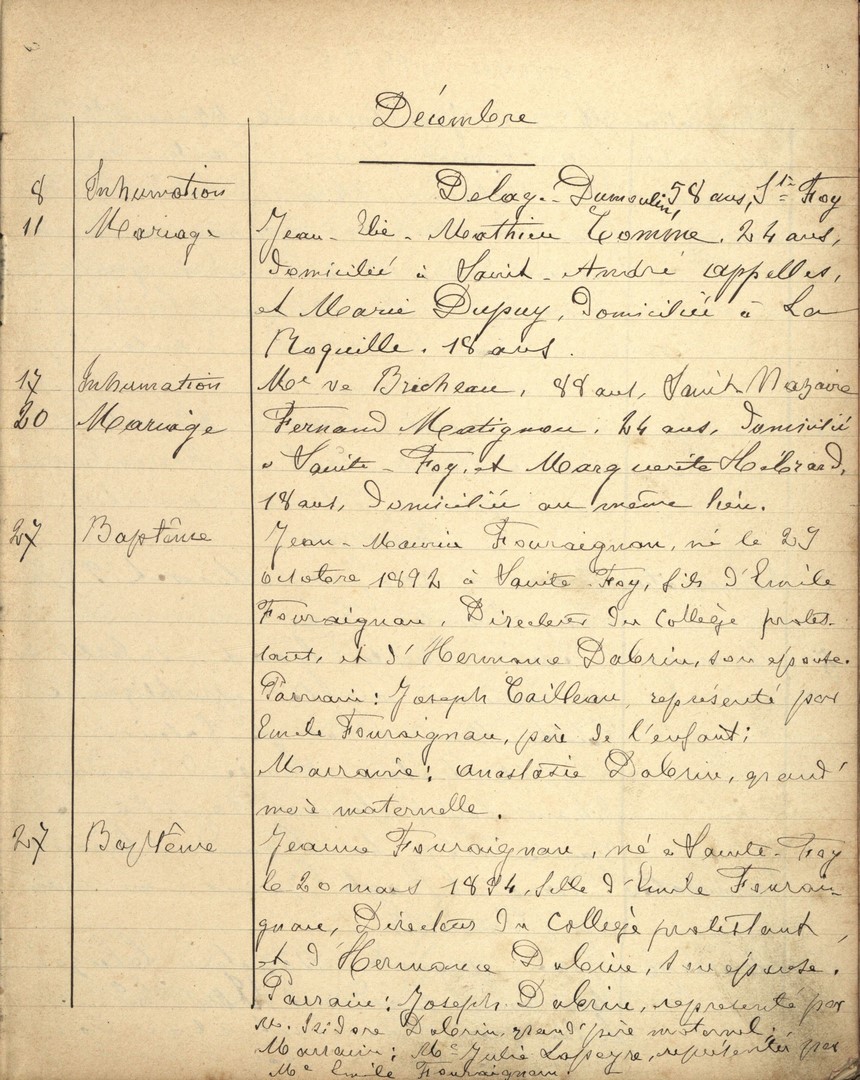 Décembre
8 Inhumation Delage-Dumoulin, 58 ans, Ste Foy
11 Mariage Jean-Elie-Mathieu Comme, 24 ans,
domicilié à Saint-André appelles,
et Marie Dupuy, domiciliée à La
Roquille. 18 ans.
17 Inhumation Me ve Bricheau, 88 ans, Saint-Nazaire
20 Mariage Fernand Matignon, 24 ans, domicilié
à Sainte-Foy, et Marguerite Hébrard,
18 ans, domiciliée au même lieu.
27 Baptême Jean-Maurice Fouraignan, né le 29
octobre 1892 à Sainte-Foy, fils d'Emile
Fouraignan, Directeur du Collège protes-
tant, et d'Hermance Dabrin, son épouse.
Parrain: Joseph Cailleau, représenté par
Emile Fouraignan, père de l'enfant;
Marraine: Anastasie Dabrin, grand'
mère maternelle.
27 Baptême Jeanne Fouraignan, né à Sainte-Foy
le 20 mars 1894, fille d'Emile Fourai-
gnan, Directeur du Collège protestant,
et d'Hermance Dabrin, son épouse.
Parrain: Joseph Dabrin, représenté par
M. Isidore Dabrin, grand'père maternel;
Marraine: Me Julie Lapeyre, représentée par
Me Emile Fouraignan.